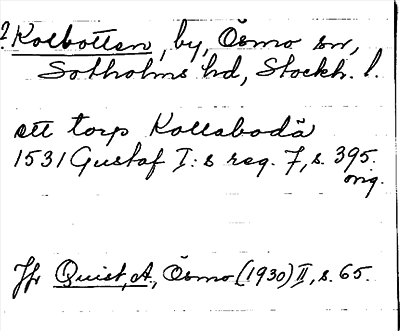 ? Kolbotten, by, Ösmo sn,
Sotholms hd, Stockh. l.
ett torp Kollabodä
1531 Gustaf I:s reg. 7, s. 395.
orig.
Jfr Quist, A., Ösmo (1930) II, s. 65.